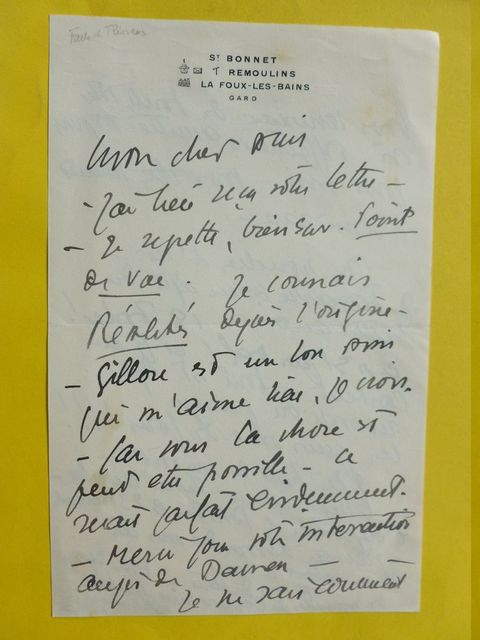 St BONNET
REMOULINS
LA FOUX-LES-BAINS
GARD
Mon cher ami
- J'ai bien reçu votre lettre -
- Je regrette, bien sûr. Point
de Vue. Je connais
Réalités depuis l'origine -
- Gillou est un bon ami
qui m'aime bien,
- la chose est
peut être possible - ce
serait parfait évidemment.
- Merci pour votre intervention
auprès de
Je ne sais comment